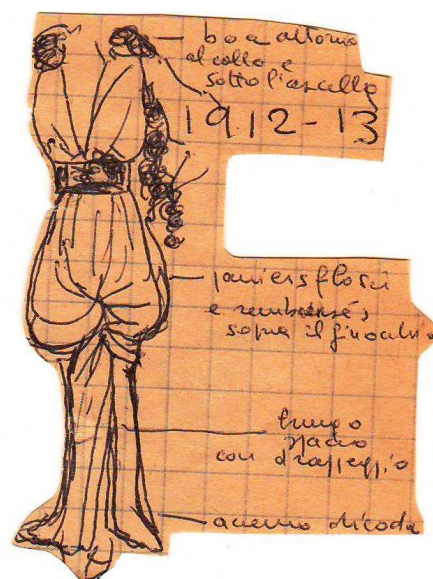 boa attorno
al collo e
sotto l'ascella
1912-13
paniers flosci
e rembourrés
sopra il ginocchio
lungo
spacco
con drappeggio
accenno di coda